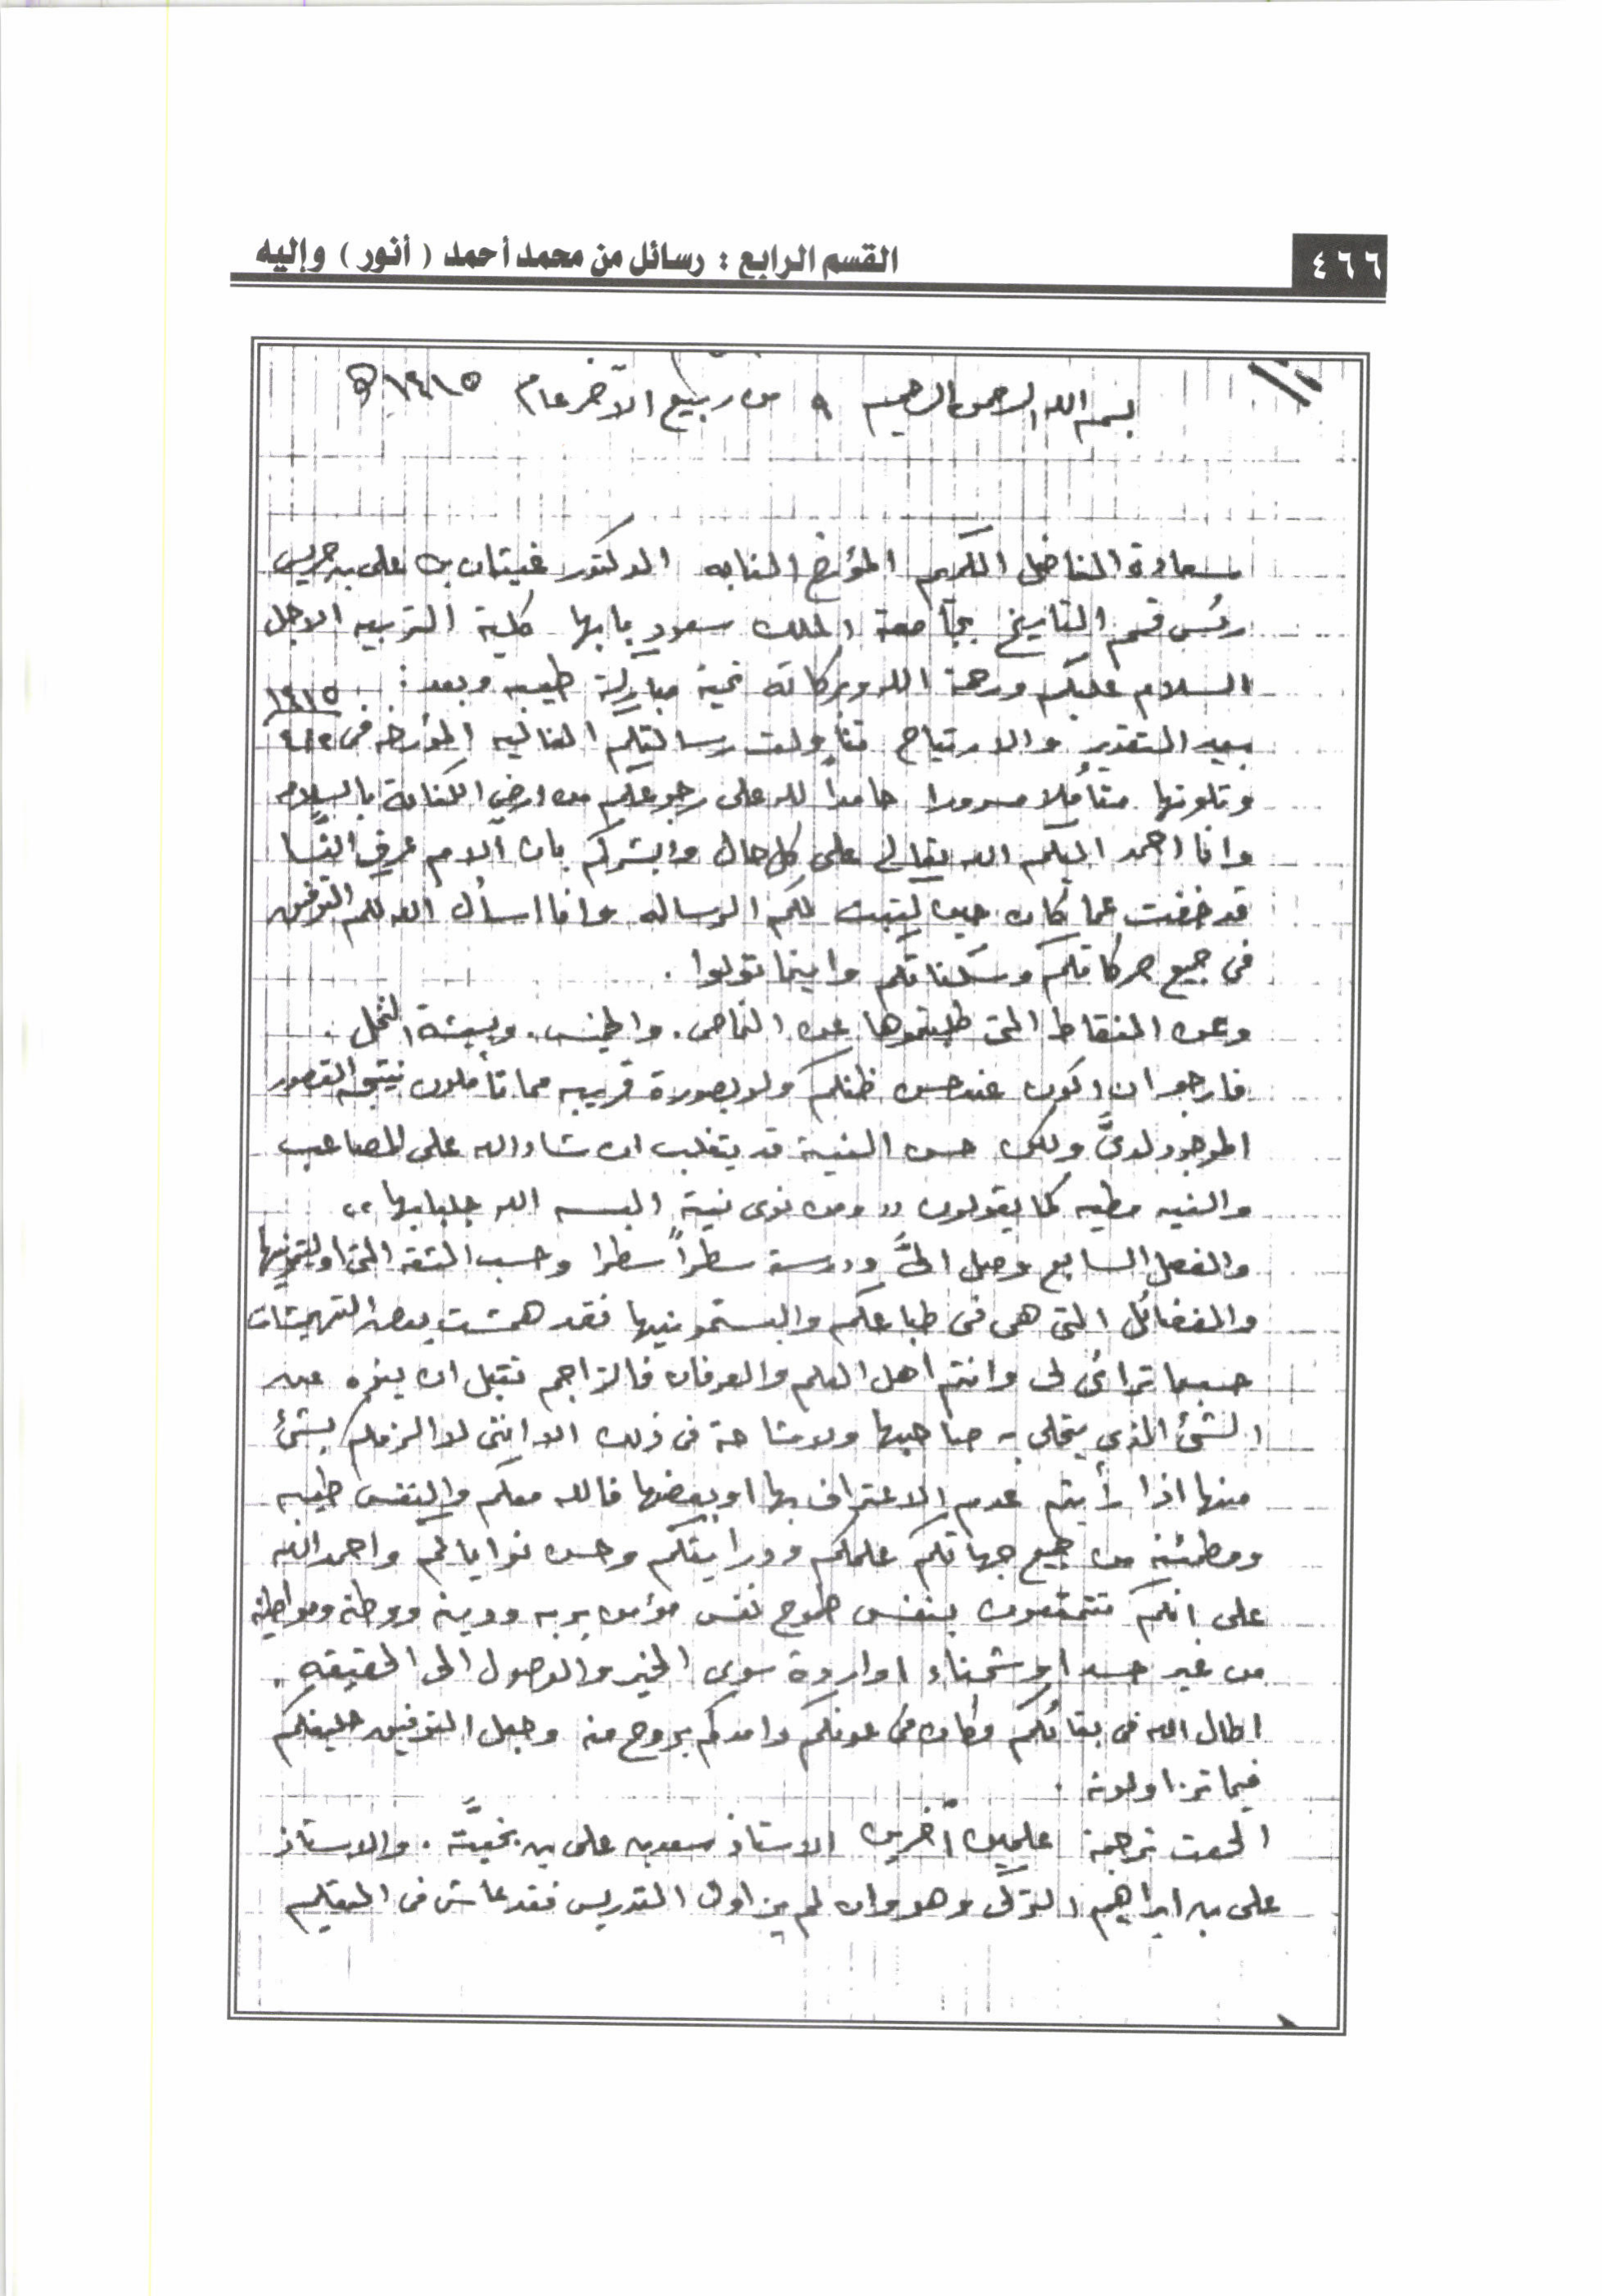 ٤٦٦
القسم الرابع : رسائل من محمد أحمد ( أنور ) وإليه
بسم الله الرحمن الرحيم ٩ من ربيع الآخر عام ١٤١٥ هـ
سعادة الفاضل الكريم المؤرخ النابه الدكتور غيثان بن علي بن جريس
رئيس قسم التاريخ بجامعة الملك سعود بابها كلية التربيه الاجل
السلام عليكم ورحمة الله وبركاته تحية مباركة طيبه وبعد :
بيد التقدير والارتياح تناولت رسالتكم الغاليه المؤرخه في ٤/٢ ١٤١٥
وتلوتها متأملا مسرورا حامداً لله على رجوعكم من ارض الكنانة بالسلامه
وانا احمد اليكم الله تعالى على كل حال وابشركم بان آلام عرق النسا
قد خفت عما كان حين كتبت لكم الرساله وانا اسأل الله لكم التوفيق
في جميع حركاتكم وسكناتكم واينما تولوا .
وعن النقاط التي طلبتموها عن النماص . والحيفس . وبيشة النخل .
فارجو ان اكون عند حسن ظنكم ولو بصورة قريبه مما تأملون نتيجة القصور
الموجود لديَّ ولكن حسن النية قد يتغلب ان شاء الله على المصاعب
والنيه مطيه كما يقولون (( ومن نوى نية البسه الله جلبابها ))
والفصل السابع وصل اليَّ ودرسته سطراً سطرا وحسب الثقة التي اوليتمونيها
والفضائل التي هي في طباعكم والبستمونيها فقد همشت بعض التهميشات
حسبما ترائى لى وانتم اهل العلم والعرفان فالتراجم تقبل ان ينوه عن
الشئ الذي يتحلى به صاحبها ولا مشاحة في ذلك الا انني لا الزمكم بشئ
منها اذا رأيتم عدم الاعتراف بها او بعضها فالله معكم والنفس طيبه
ومطمئنه من جميع جهاتكم علمكم ودرايتكم وحسن نواياكم واحمد الله
على انكم تتمتعون بنفس طموح نفس مؤمن بربه ودينه ووطنه ومواطنيه
من غير حسد او شحناء او اردة سوى الخير والوصول الى الحقيقه .
اطال الله في بقائكم وكان في عونكم وامدكم بروح منه وجعل التوفيق حليفكم
فيما تزاولونه .
الحقت ترجمة علمين آخرين الاستاذ سعد بن علي بن بخيتَّه . والاستاذ
علي بن ابراهيم التركي وهو وان لم يزاول التدريس فقد عاش في التعليم